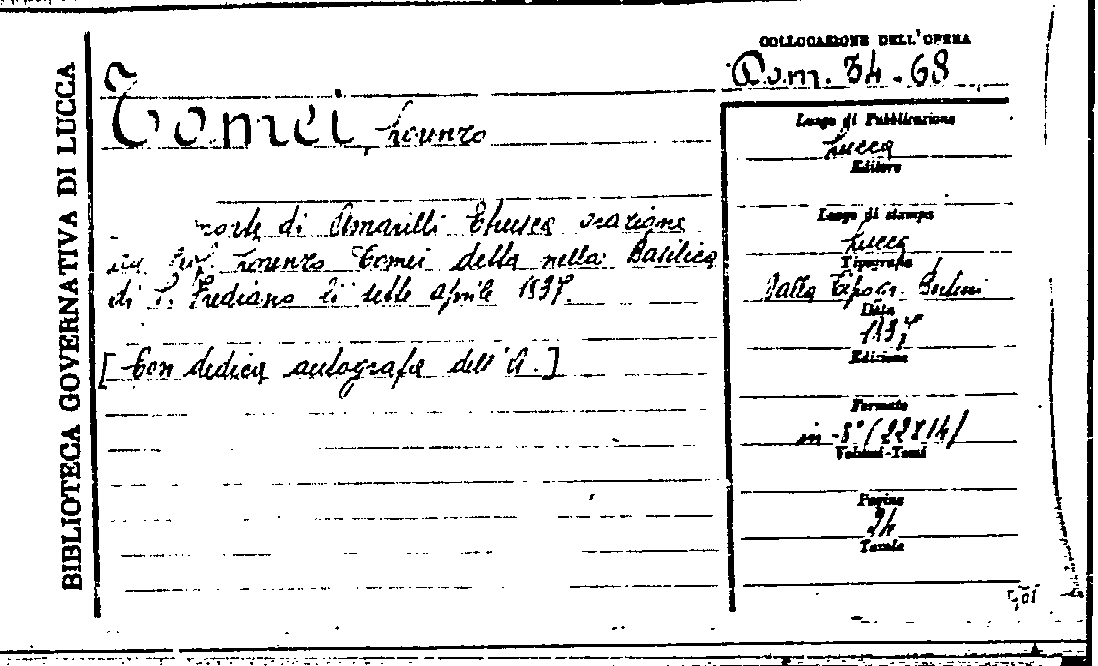 BIBLIOTECA GOVERNATIVA DI LUCCA
COLLOCAZIONE DELL'OPERA
Dom. 34-68
Tomei, Lorenzo
Luogo di Pubblicazione
Lucca
Editore
di Amarilli Etrusca orazione
Lorenzo Tomei detta nella Basilica
di S. Frediano li sette aprile 1837.
[Con dedica autografa dell'A.]
Luogo di stampa
Lucca
Tipografia
Dalla Tipogr. Bertini
Data
1837
Edizione
Formato
in-8° (22X14)
Volumi-Tomi
Pagine
24
Tavole